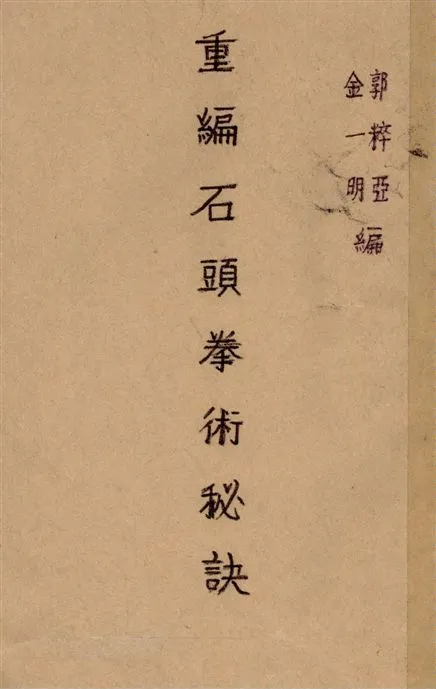 郭粹亞
金一明
編
重編石頭拳術秘訣